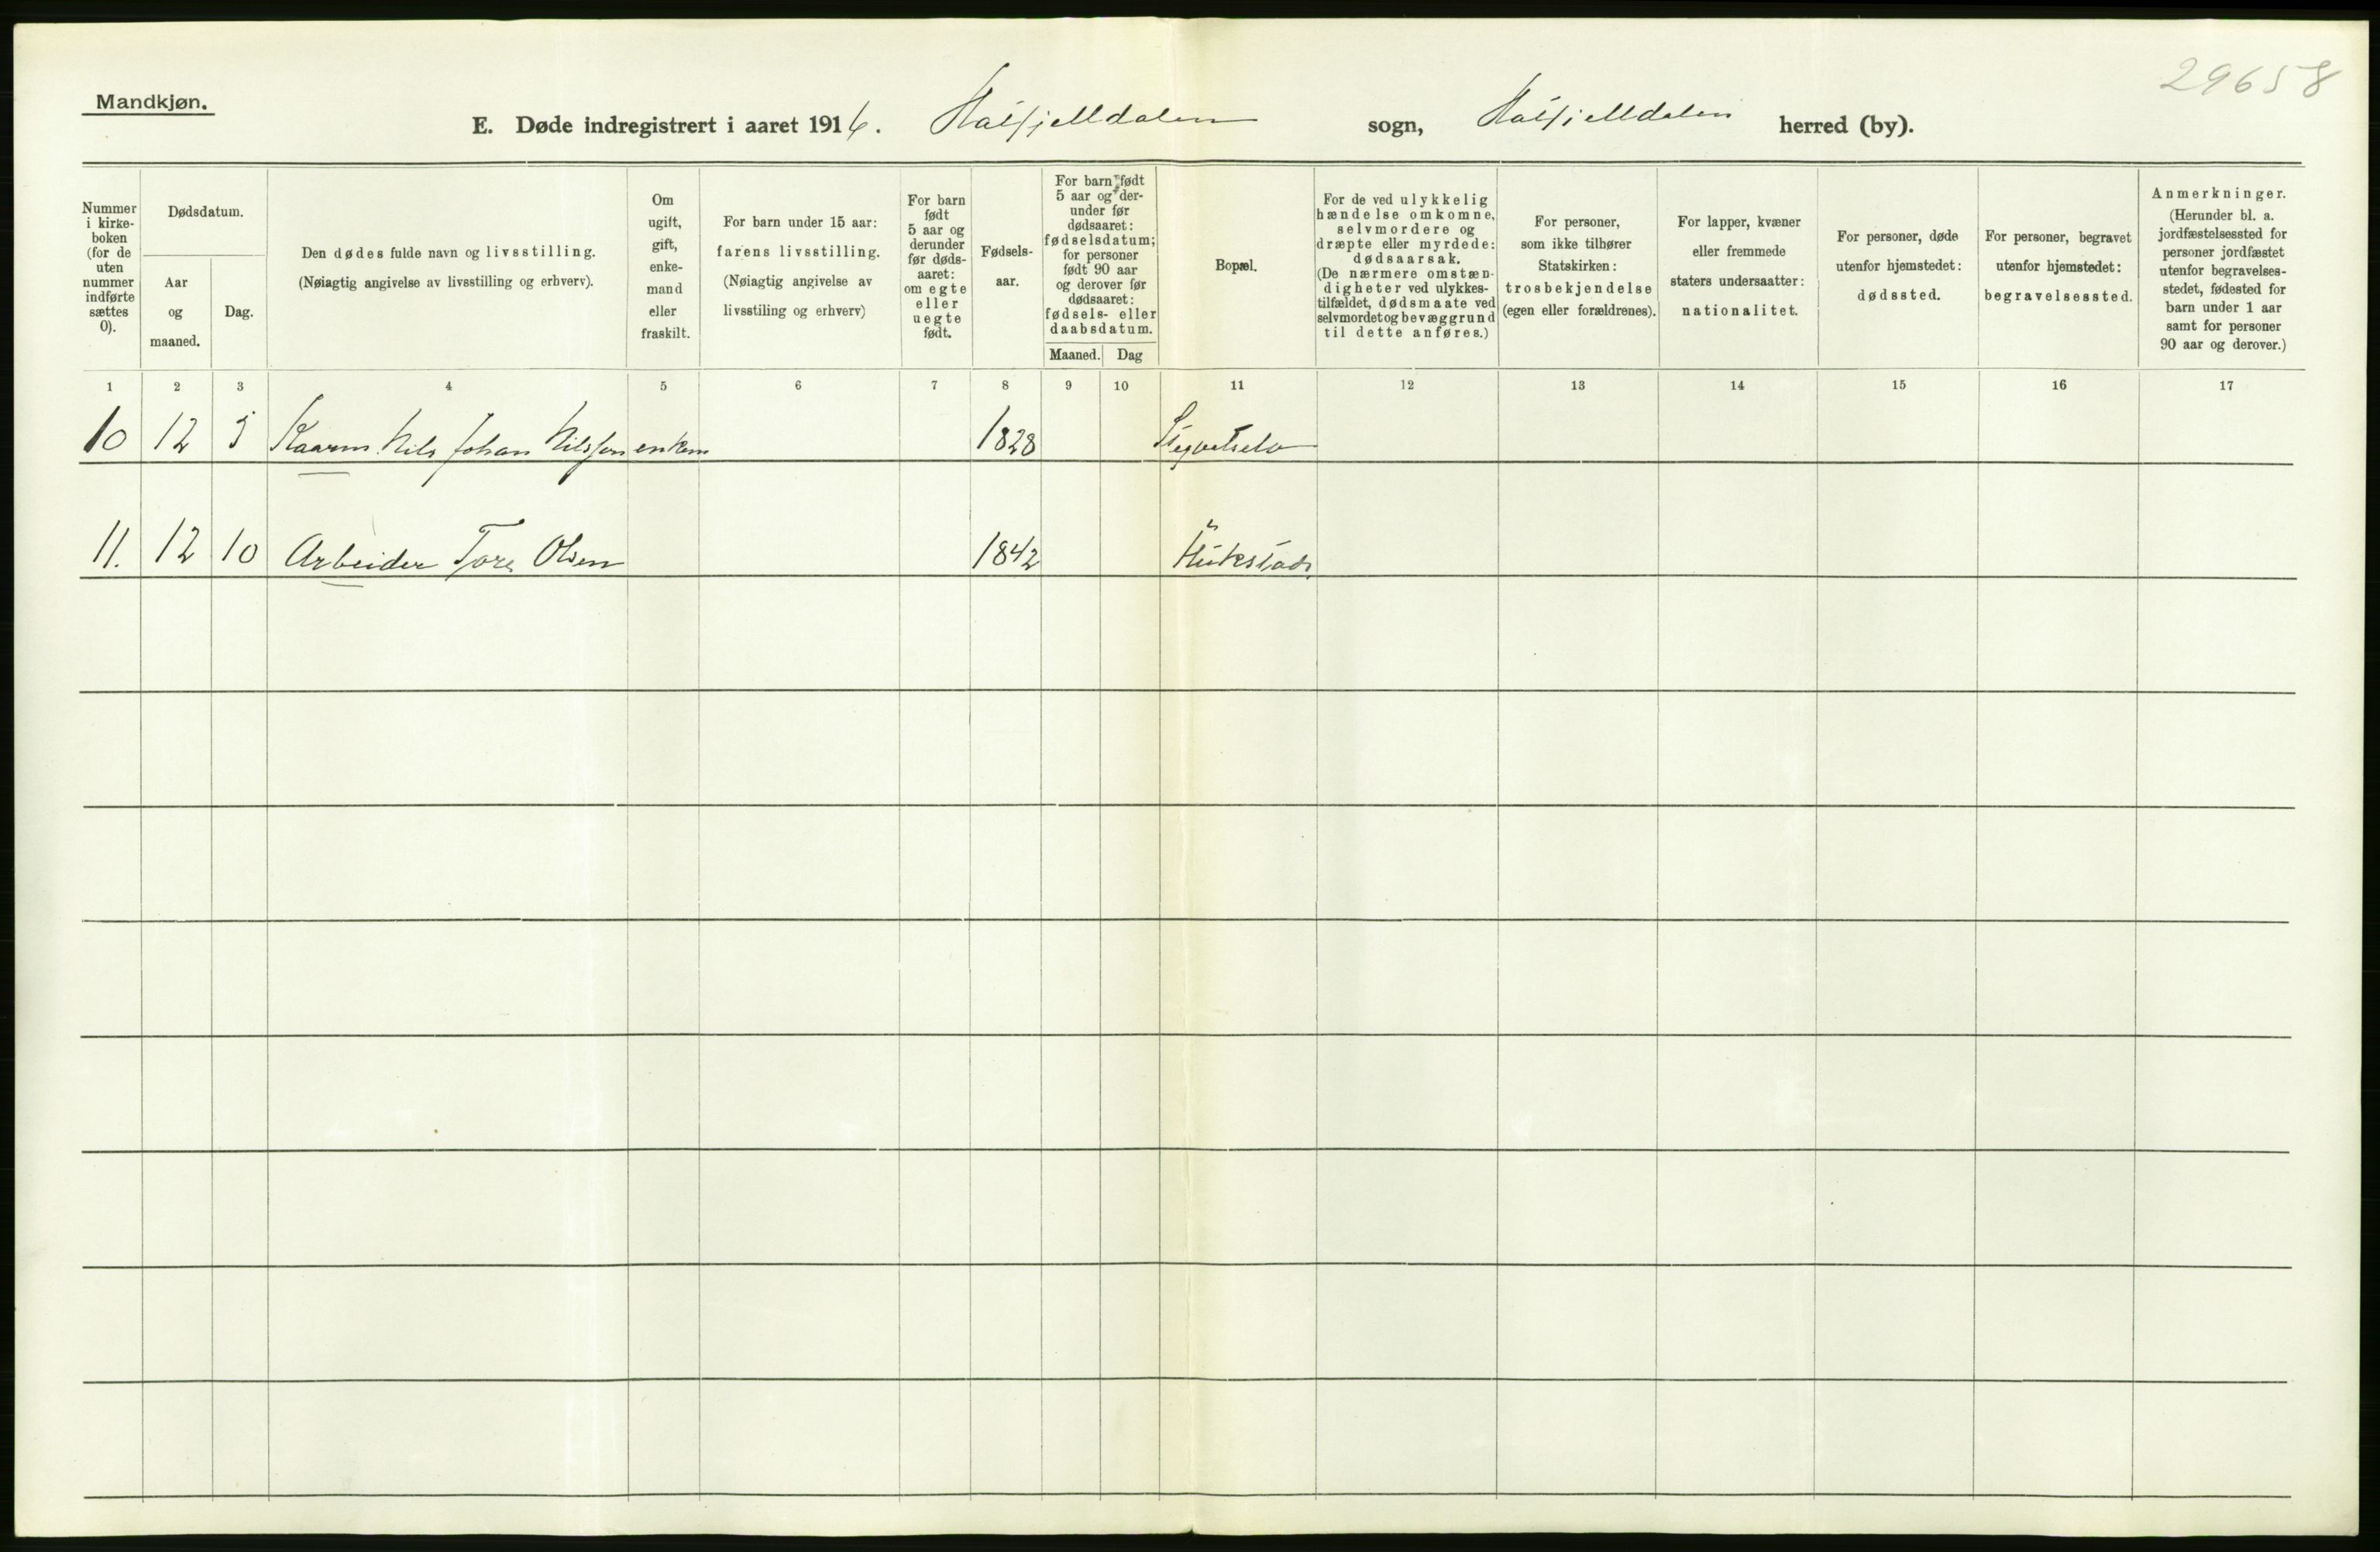 29658
Mandkjøn.
E. Døde indregistrert i aaret 1916. Hatfjelldalen sogn, Hatfjelldalen herred (by).
Nummer
i kirke-
boken
(for de
uten
nummer
indførte
sættes
0).
Dødsdatum.
Aar
og
maaned.
Dag.
Den dødes fulde navn og livsstilling.
(Nøiagtig angivelse av livsstilling og erhverv).
Om
ugift,
gift,
enke-
mand
eller
fraskilt.
For barn under 15 aar:
farens livsstilling.
(Nøiagtig angivelse av
livsstiling og erhverv)
For barn
født
5 aar og
derunder
før døds-
aaret:
om egte
eller
uegte
født.
Fødsels-
aar.
For barn født
5 aar og der-
under før
dødsaaret:
fødselsdatum;
for personer
født 90 aar
og derover før
dødsaaret:
fødsels- eller
daabsdatum.
Maaned. Dag
Bopæl.
For de ved ulykkelig
hændelse omkomne,
selvmordere og
dræpte eller myrdede:
dødsaarsak.
(De nærmere omstæn-
digheter ved ulykkes-
tilfældet, dødsmaate ved
selvmordet og bevæggrund
til dette anføres.)
For personer,
som ikke tilhører
Statskirken:
trosbekjendelse
(egen eller forældrenes).
For lapper, kvæner
eller fremmede
staters undersaatter:
nationalitet.
For personer, døde
utenfor hjemstedet:
dødssted.
For personer, begravet
utenfor hjemstedet:
begravelsessted.
Anmerkninger.
(Herunder bl. a.
jordfæstelsessted for
personer jordfæstet
utenfor begravelses-
stedet, fødested for
barn under 1 aar
samt for personer
90 aar og derover.)
1 2 3 4 5 6 7 8 9 10 11 12 13 14 15 16 17
10 12 5 Kaarm. Nils Johan Nilssen enkem 1828
11. 12 10 Arbeider Tore Olsen 1842